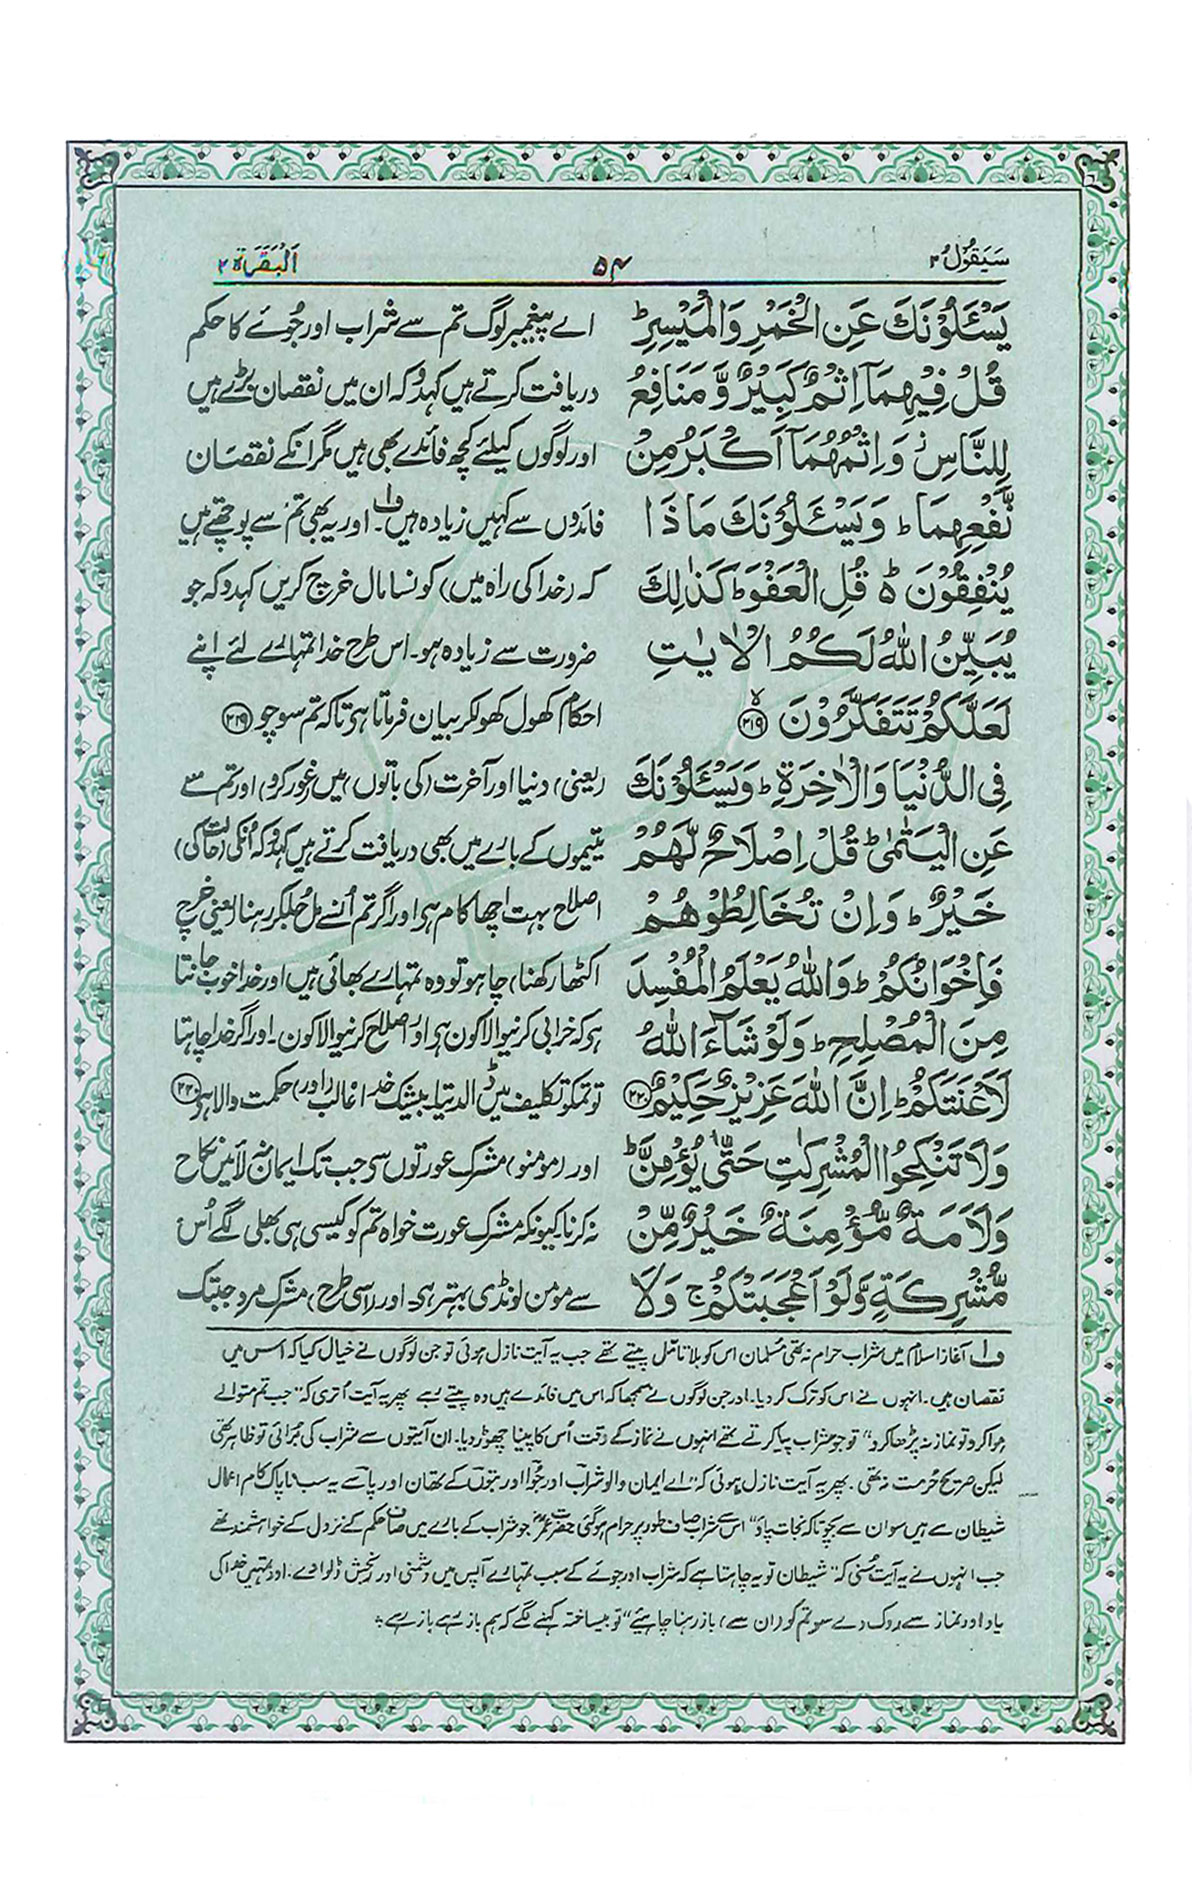 سَيَقُوْلُ ٢
٥٤
اَلْبَقَرَة ٢
يَسْـَٔلُوْنَكَ عَنِ الْخَمْرِ وَالْمَيْسِرِ ؕ
قُلْ فِيْهِمَاۤ اِثْمٌ كَبِيْرٌ وَّ مَنَافِعُ
لِلنَّاسِ ؗ وَ اِثْمُهُمَاۤ اَكْبَرُ مِنْ
نَّفْعِهِمَا ؕ وَيَسْـَٔلُوْنَكَ مَا ذَا
يُنْفِقُوْنَ ؕ۬ قُلِ الْعَفْوَ ؕ كَذٰلِكَ
يُبَيِّنُ اللّٰهُ لَكُمُ الْاٰيٰتِ
لَعَلَّكُمْ تَتَفَكَّرُوْنَ ۙ ﴿٢١٩﴾
فِى الدُّنْيَا وَالْاٰخِرَةِ ؕ وَيَسْـَٔلُوْنَكَ
عَنِ الْيَتٰمٰى ؕ قُلْ اِصْلَاحٌ لَّهُمْ
خَيْرٌ ؕ وَاِنْ تُخَالِطُوْهُمْ
فَاِخْوَانُكُمْ ؕ وَاللّٰهُ يَعْلَمُ الْمُفْسِدَ
مِنَ الْمُصْلِحِ ؕ وَلَوْ شَآءَ اللّٰهُ
لَاَعْنَتَكُمْ ؕ اِنَّ اللّٰهَ عَزِيْزٌ حَكِيْمٌ ﴿٢٢٠﴾
وَلَا تَنْكِحُوا الْمُشْرِكٰتِ حَتّٰى يُؤْمِنَّ ؕ
وَلَاَمَةٌ مُّؤْمِنَةٌ خَيْرٌ مِّنْ
مُّشْرِكَةٍ وَّلَوْ اَعْجَبَتْكُمْ ۚ وَلَا
اے پیغمبر لوگ تم سے شراب اور جُوئے کا حکم
دریافت کرتے ہیں کہدو کہ ان میں نقصان بڑے ہیں
اور لوگوں کیلئے کچھ فائدے بھی ہیں مگر انکے نقصان
فائدوں سے کہیں زیادہ ہیں ف۱۔ اور یہ بھی تم سے پوچھتے ہیں
کہ (خدا کی راہ میں) کونسا مال خرچ کریں کہدو کہ جو
ضرورت سے زیادہ ہو۔ اس طرح خدا تمہارے لئے اپنے
احکام کھول کھولکر بیان فرماتا ہی تاکہ تم سوچو ﴿۲۱۹﴾
(یعنی) دنیا اور آخرت (کی باتوں) میں (غور کرو) اور تم سے
یتیموں کے بارے میں بھی دریافت کرتے ہیں کہدو کہ اُنکی (حالت کی)
اصلاح بہت اچھا کام ہی اور اگر تم اُنسے مل جلکر رہنا (یعنی خرچ
اکٹھا رکھنا) چاہو تو وہ تمہارے بھائی ہیں اور خدا خوب جانتا
ہی کہ خرابی کرنیوالا کون ہی اور اصلاح کرنیوالا کون۔ اور اگر خدا چاہتا
تو تمکو تکلیف میں ڈالدیتا۔ بیشک خدا غالب (اور) حکمت والا ہی ﴿۲۲۰﴾
اور (مومنو) مشرک عورتوں سی جب تک ایمان نہ لائیں نکاح
نہ کرنا۔ کیونکہ مشرک عورت خواہ تم کو کیسی ہی بھلی لگے اُس
سے مومن لونڈی بہتر ہی۔ اور (اسی طرح) مشرک مرد جبتک
ف۱ آغاز اسلام میں شراب حرام نہ تھی مسلمان اس کو بلا تامّل پیتے تھے جب یہ آیت نازل ہوئی تو جن لوگوں نے خیال کیا کہ اس میں
نقصان ہیں۔ انہوں نے اس کو ترک کر دیا۔ اور جن لوگوں نے سمجھا کہ اس میں فائدے ہیں وہ پیتے رہے پھر یہ آیت اُتری کہ "جب تم متوالے
ہوا کرو تو نماز نہ پڑھا کرو" تو جو شراب پیا کرتے تھے انہوں نے نماز کے وقت اُس کا پینا چھوڑ دیا۔ ان آیتوں سے شراب کی بُرائی تو ظاہر تھی
لیکن صریح حُرمت نہ تھی۔ پھر یہ آیت نازل ہوئی کہ "اے ایمان والو شراب اور جُوا اور بتوں کے تھان اور پانسے یہ سب ناپاک کام اعمال
شیطان سے ہیں سو ان سے بچو تاکہ نجات پاؤ" اس سے شراب صاف طور پر حرام ہو گئی حضرت عمرؓ جو شراب کے بارے میں صاف حکم کے نزول کے خواہشمند تھے
جب انہوں نے یہ آیت سُنی کہ "شیطان تو یہ چاہتا ہے کہ شراب اور جوئے کے سبب تمہارے آپس میں دشمنی اور رنجش ڈلوا دے۔ اور تمہیں خدا کی
یاد اور نماز سے روک دے سو تم کو (ان سے) باز رہنا چاہیئے" تو بیساختہ کہنے لگے کہ ہم باز رہے باز رہے؛